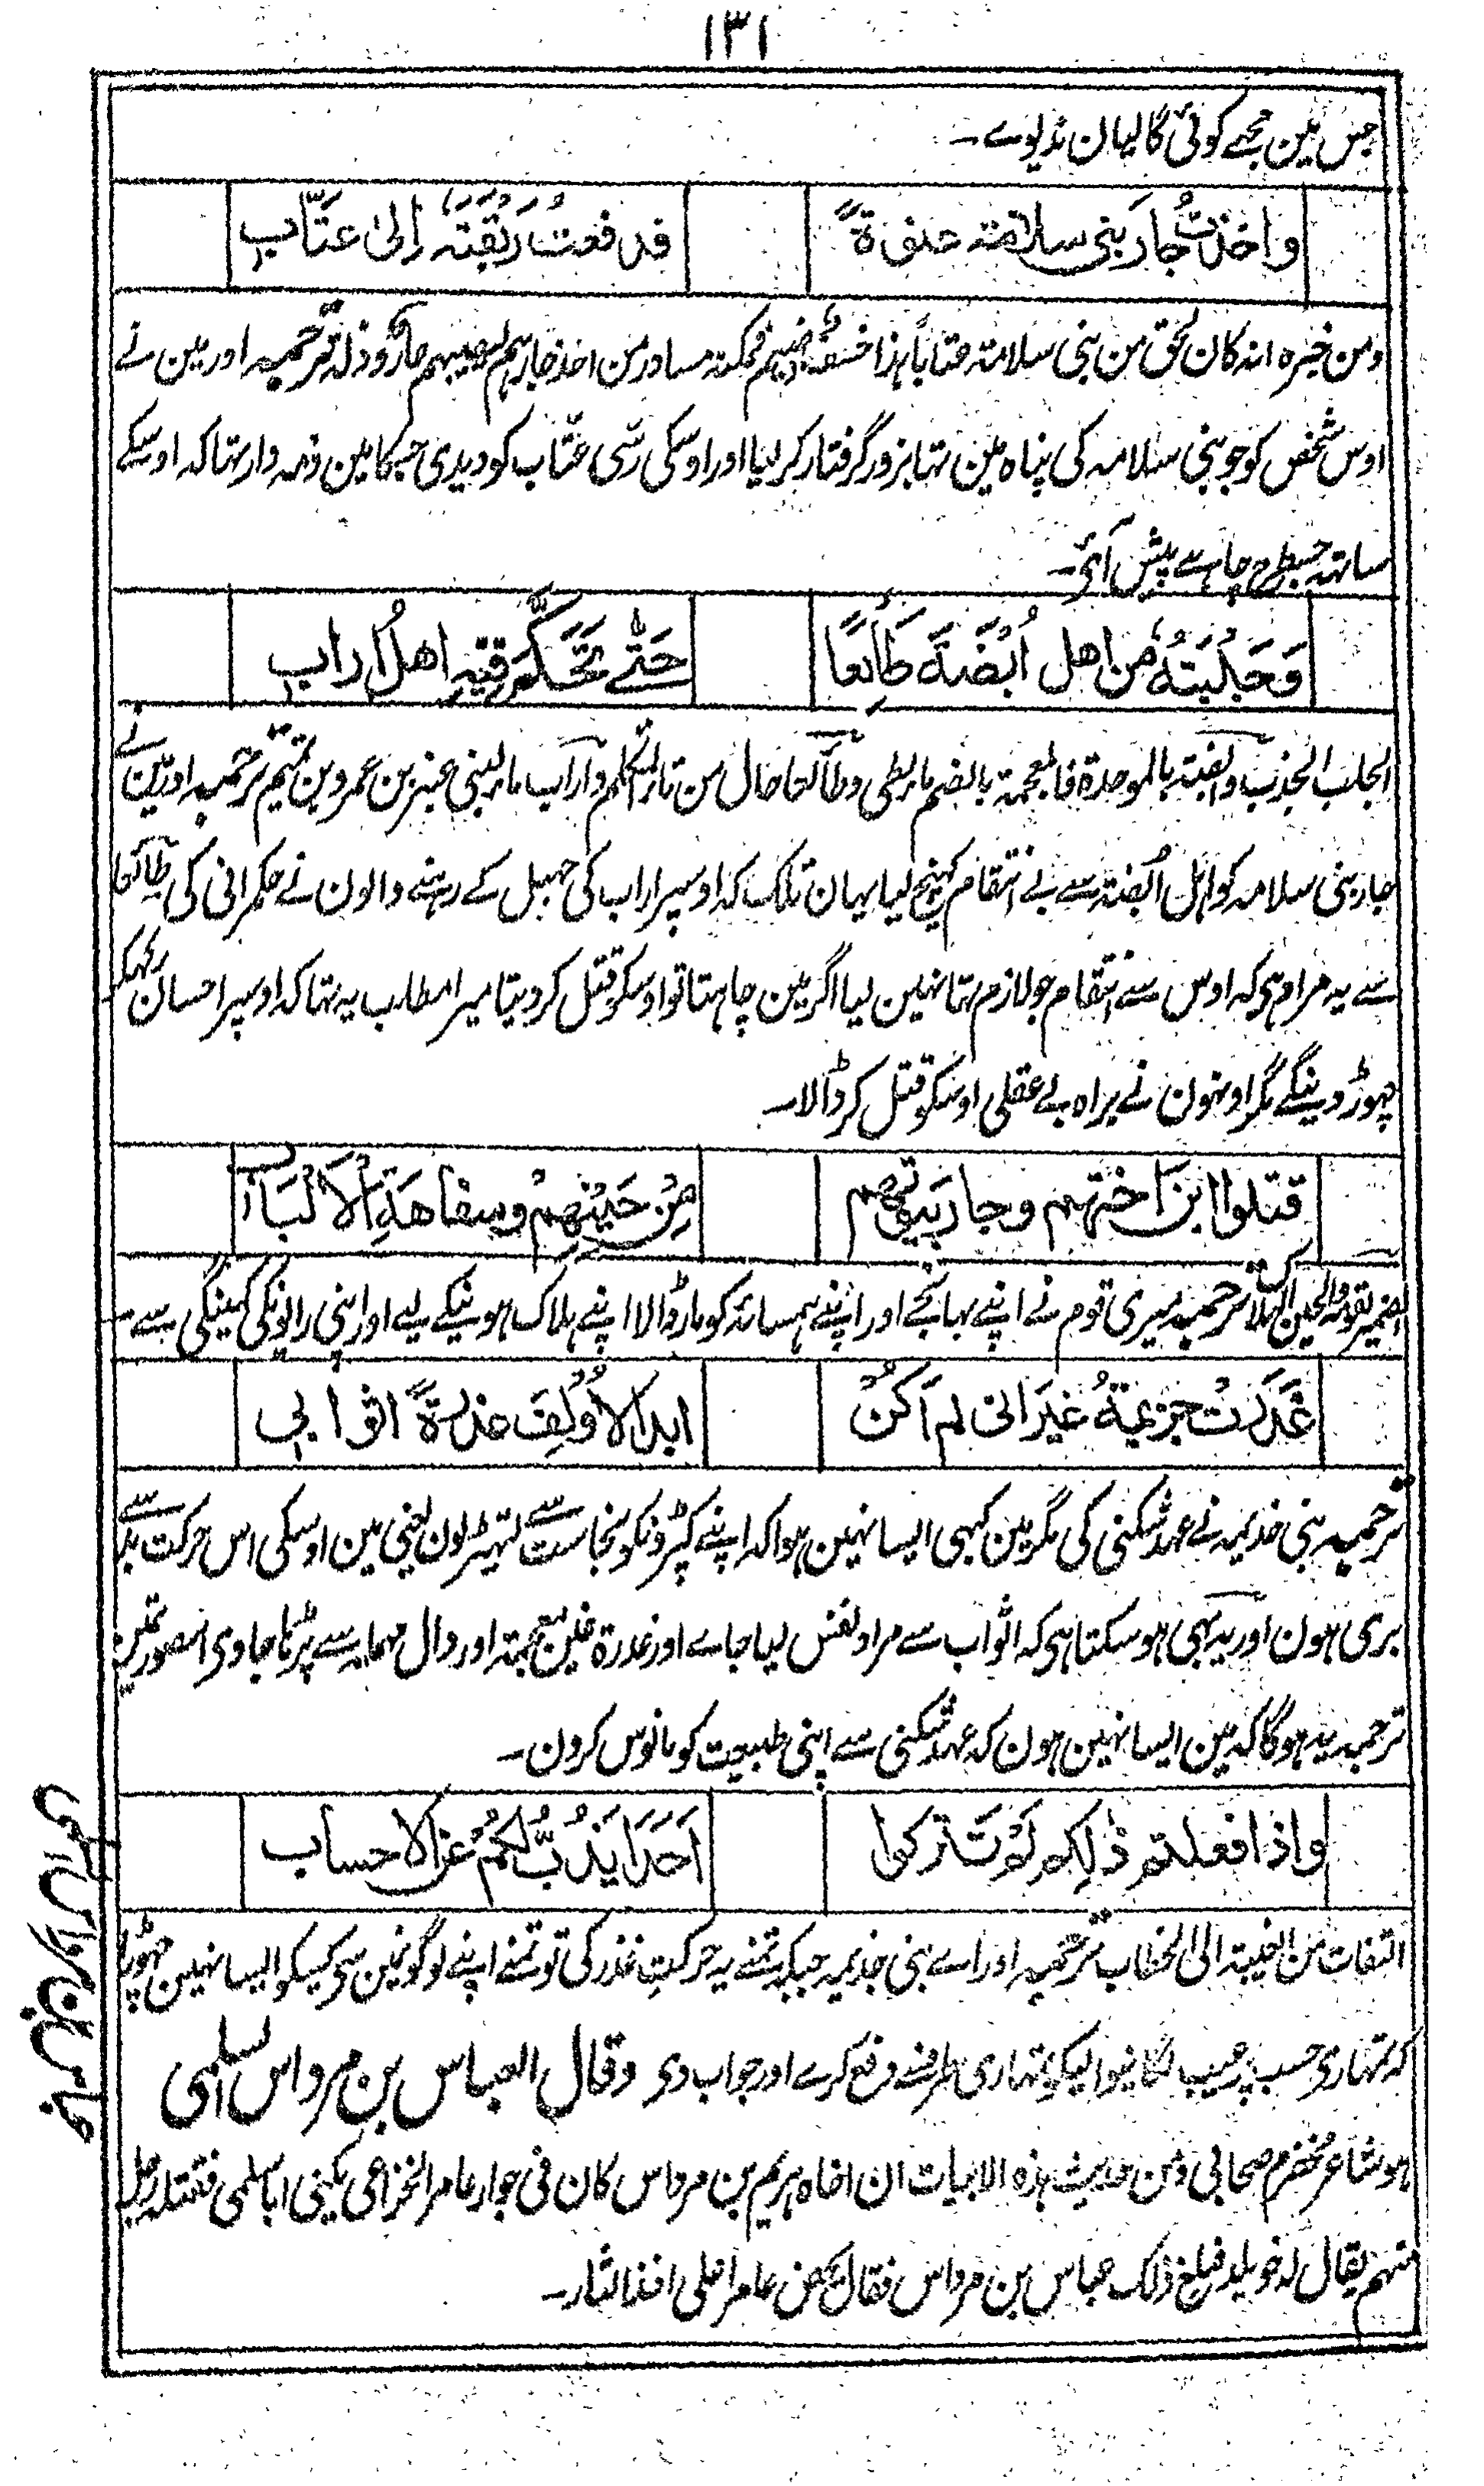 ۱۳۱
جس مین مجھے کوئی گالیان ندیوے۔
واخذتُ جارَ بنی سلامۃ عنوۃً
فدفعتُ رِبْقَتَہٗ اِلیٰ عتَّابِ
ومن خبرہ انہ کان لحق من بنی سلامتہ عتاباً ہذا ترجمہ اور مین نے
اوس شخص کو جو بنی سلامہ کی پناہ مین تہا بزور گرفتار کرلیا اور اوسکی رسّی عتّاب کو دیدی جسکا مین ذمہ دار تہا کہ اوسکے
ساتہہ جسطرح چاہے پیش آئے۔
وَجَلَبْتُہٗ مِن اھل اُبْضَۃَ طَائِعًا
حَتّٰے تَحَکَّمَ فیہِ اھلُ اُرابِ
الجلب الجذب وابضہ بالموحدۃ فالمعجمۃ بالضم ماء لطی وطائعا حال من تاء المتکلم واراب ماء لبنی عنبر بن عمرو بن تمیم ترجمہ اور مین نے
جار بنی سلامہ کو اہل اُبضتہ سے بے انتقام کہینچ لیا یہان تلک کہ اوسپر اراب کی جہیل کے رہنے والون نے حکمرانی کی طائعا
سے یہ مراد ہی کہ اوس سے انتقام جو لازم تہا نہین لیا اگر مین چاہتا تو اوسکو قتل کردیتا میرا مطلب یہ تہا کہ اوسپر احسان رکہکر
چہوڑ دینگے مگر اونہون نے براہ بے عقلی اوسکو قتل کرڈالا۔
قتلوا ابنَ اختہم وجارَ بیوتہم
مِنْ حَیْنِہِمْ وسفاھَۃِ الْاَلْبَابِ
الضمیر لقومہ والحین الہلاک ترجمہ میری قوم نے اپنے بہانجے اور اپنے ہمسائہ کو مار ڈالا اپنے ہلاک ہونیکے لیے اور اپنی رایونکی کمینگی سے۔
غَدَرَتْ جزیمۃُ غیرَ انی لم اَکُنْ
ابدا لاُولِفَ غدرۃً اثوابی
ترجمہ بنی خذیمہ نے عہد شکنی کی مگر مین کبہی ایسا نہین ہوا کہ اپنے کپڑونکو نجاست سے لتہیڑون یعنی مین اوسکی اس حرکت بد سے
بری ہون اور یہ بہی ہو سکتا ہی کہ اثواب سے مراد نفس لیا جاے اور غدرۃ غین معجمتہ اور دال مہملہ سے پڑہا جاوی اسصورتمین
ترجمہ یہ ہوگا کہ مین ایسا نہین ہون کہ عہد شکنی سے اپنی طبیعت کو مانوس کرون۔
واذا فعلتم ذٰلِکم لَمْ تَترکوا
اَحَدًا یَذُبُّ لَکُمْ عن الاحساب
التفات من الغیبۃ الی الخطاب ترجمہ اور اے بنی جذیمہ جبکہ تمنے یہ حرکت غدر کی تو تمنے اپنے لوگونمین سی کسیکو ایسا نہین چہوڑا
کہ تمہاری حسب پر عیب لگانیوالیکو تمہاری طرفسے دفع کرے اور جواب دی وقال العباس بن مرداس السلمی
ہو شاعر مخضرم صحابی ومن حدیث ہذہ الابیات ان اخاہ ہریم بن مرداس کان فی جوار عامر الخزاعی یکنی ابا سلمی فقتلہ رجل
منہم یقال لہ خویلد فبلغ ذلک عباس بن مرداس فقال یحض عامرا علی اخذ الثار۔
عباس بن مرداس السلمی